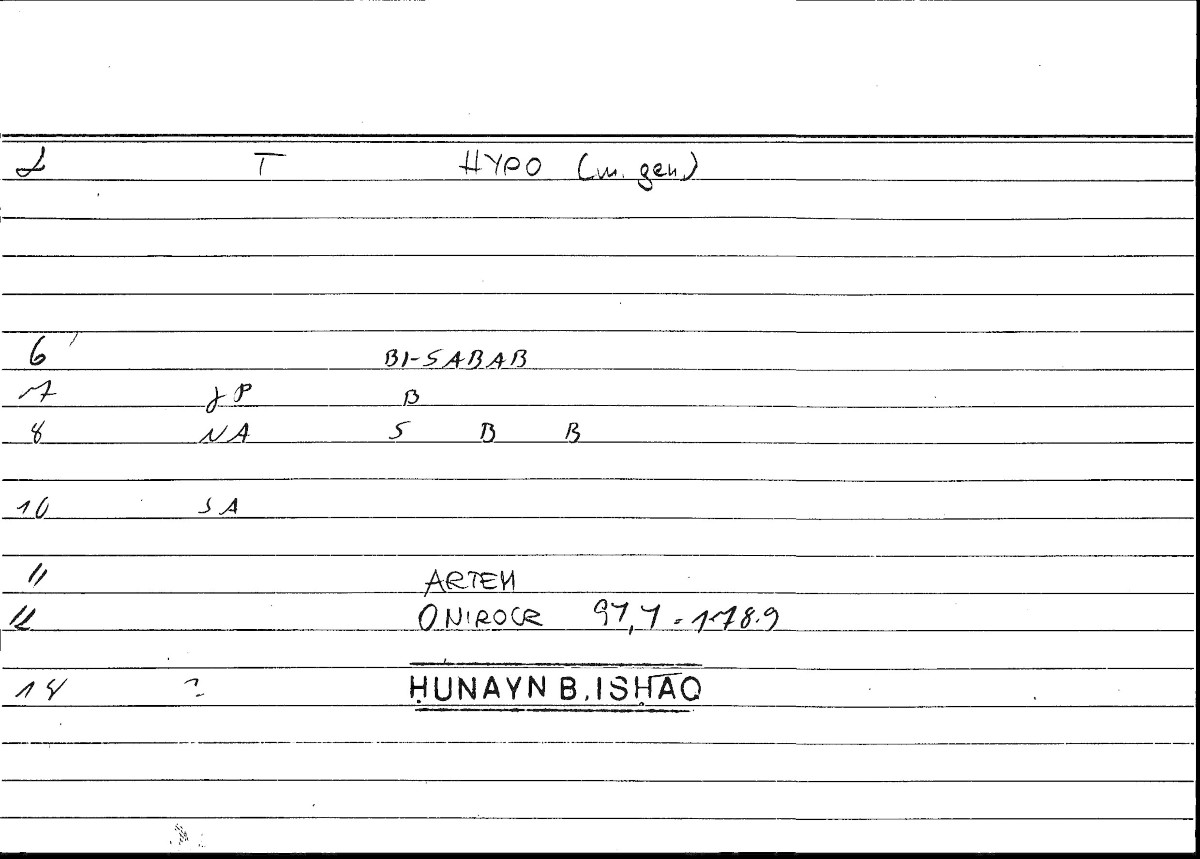 2 T HYPO (m. gen)
6 BI-SABAB
7 gP B
8 NA S B B
10 SA
11 ARTEM
12 ONIROCR 97,7 = 178.9
14 ? ḤUNAYN B. ISḤĀQ